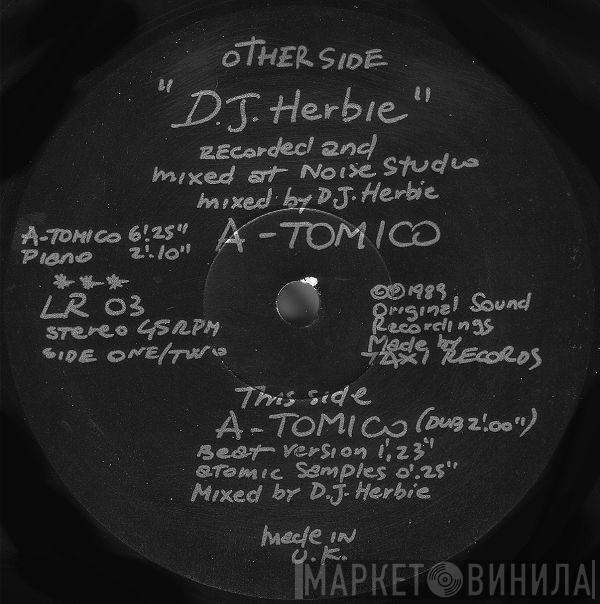 OTHER SIDE
"D.J. Herbie"
Recorded and
mixed at Noise Studio
mixed by D.J. Herbie
A-TOMICO
A-TOMICO 6'.25"
Piano 2'.10"
***
LR 03
stereo 45 RPM
SIDE ONE/TWO
©℗ 1989
Original Sound
Recordings
Made by
TAXI RECORDS
This side
A-TOMICO (DUB 2'.00")
Beat Version 1'.23"
atomic samples 0'.25"
Mixed by D.J. Herbie
Made in
U.K.
МАРКЕТ ВИНИЛА